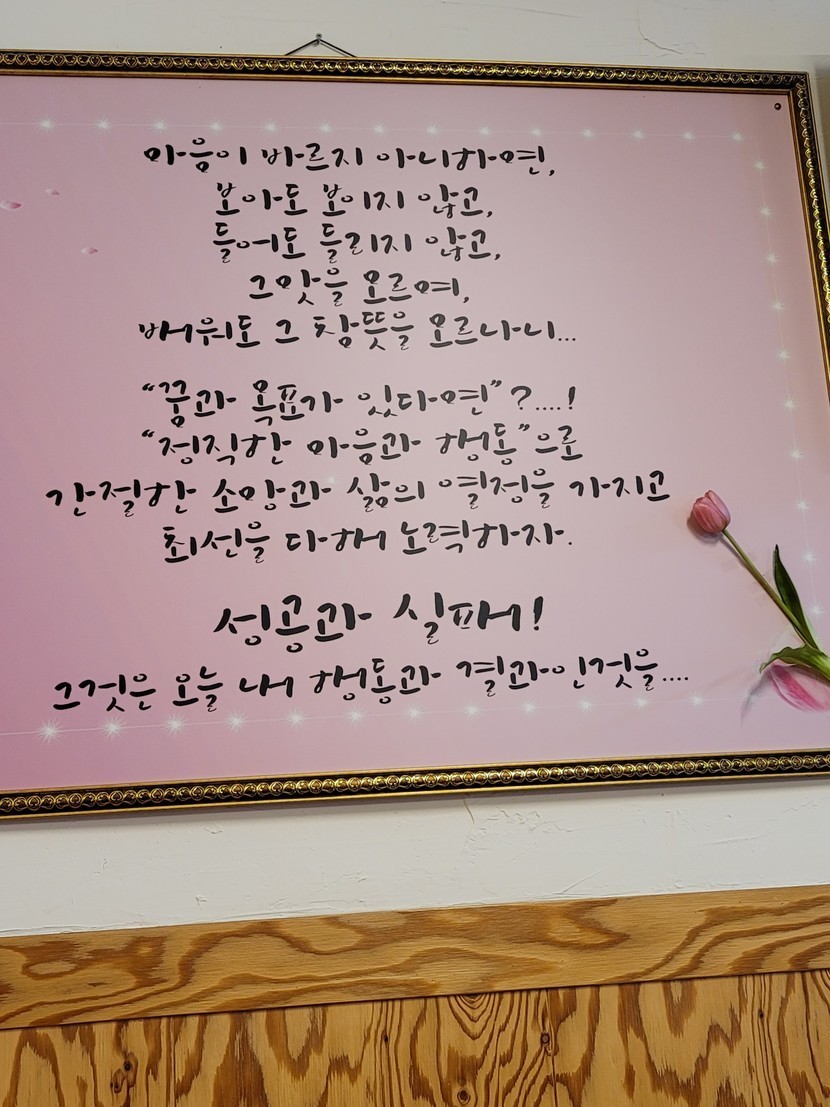 마음이 바르지 아니하면,
보아도 보이지 않고,
들어도 들리지 않고,
그맛을 모르며,
배워도 그 참뜻을 모르나니...
“꿈과 목표가 있다면”?....!
“정직한 마음과 행동”으로
간절한 소망과 삶의 열정을 가지고
최선을 다해 노력하자.
성공과 실패!
그것은 오늘 내 행동과 결과인것을....